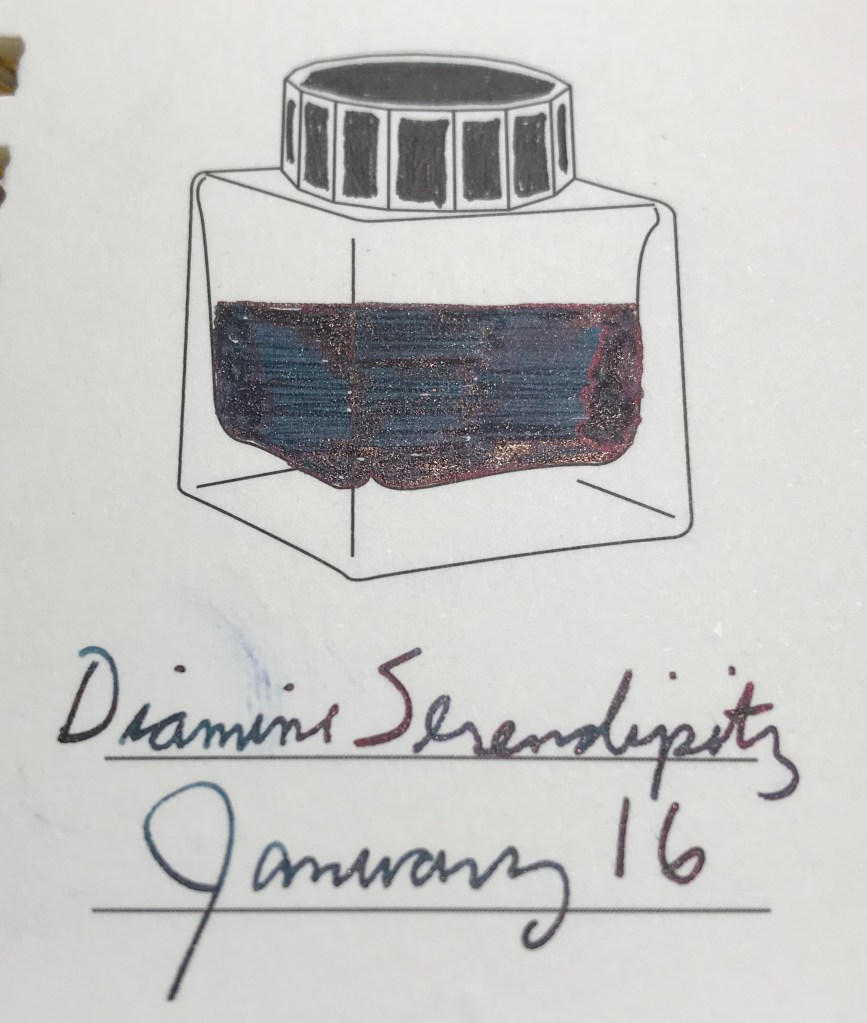 Diamine Serendipity
January 16